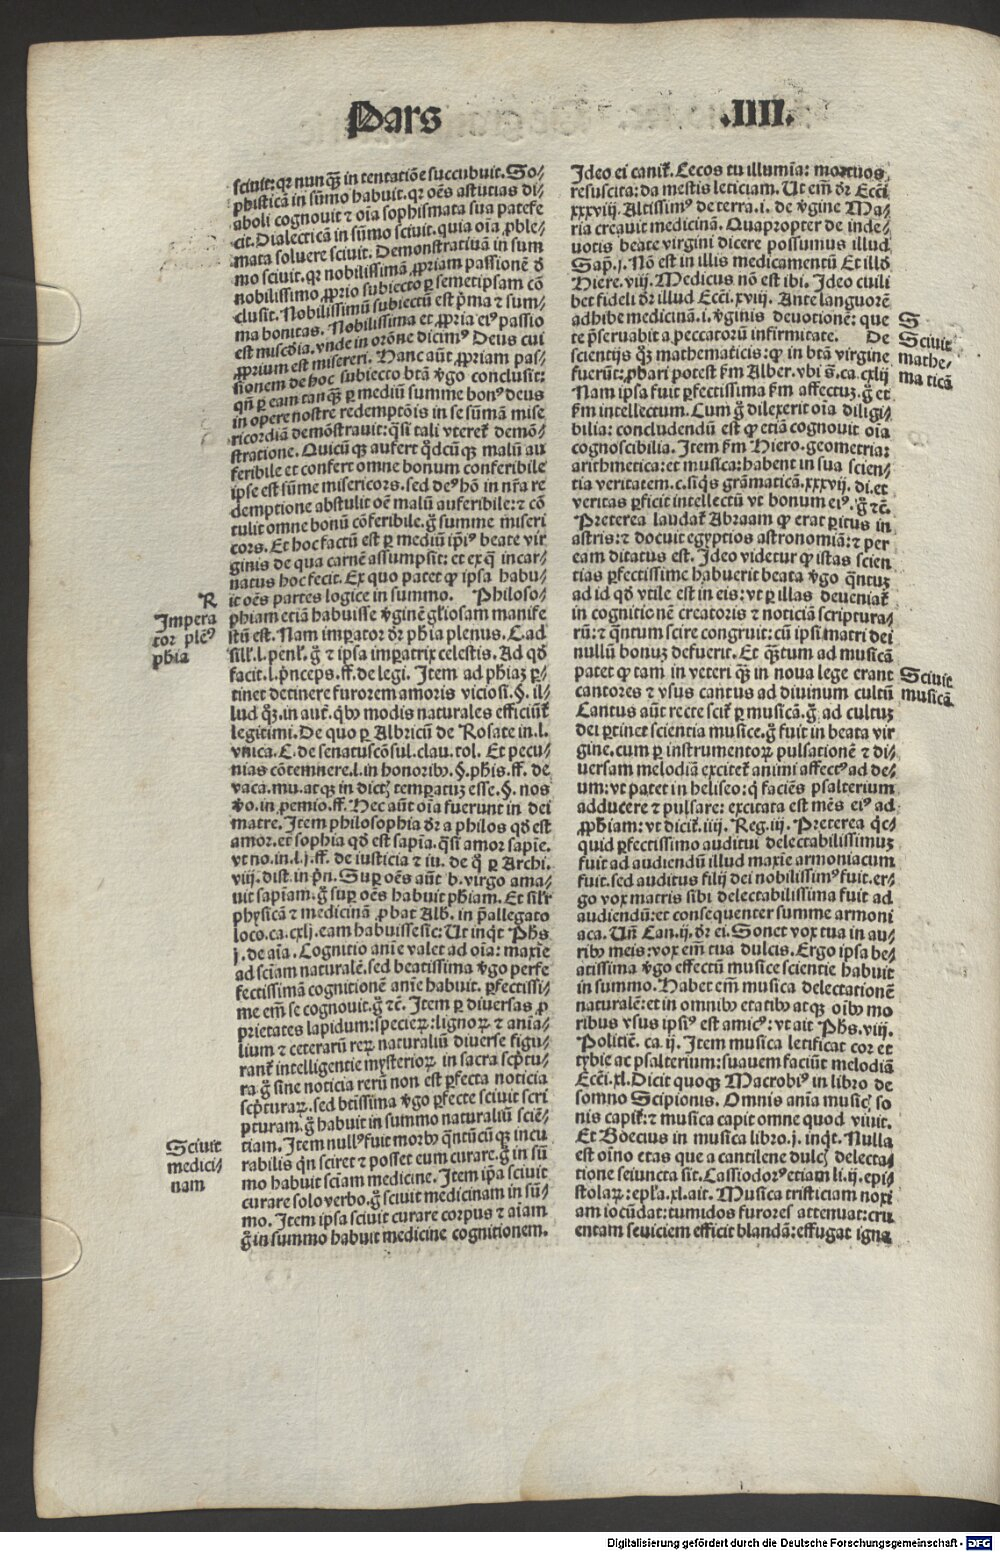 Pars .IIII.
sciuit: qꝛ nunqꝫ in tentatiõe succubuit. So⸗
phisticã in sũmo habuit. qꝛ oẽs astutias di⸗
aboli cognouit ⁊ oĩa sophismata sua patefe
cit. Dialecticã in sũmo sciuit. quia oĩa ꝓble⸗
mata soluere sciuit. Demonstratiuã in sum
mo sciuit. qꝛ nobilissimã ꝓpriam passionẽ đ
nobilissimo ꝓprio subiecto ꝑ semetipsam cõ
clusit. Nobilissimũ subiectũ est p̃ma ⁊ sum⸗
ma bonitas. Nobilissima et ꝓpria eiꝰ passio
est misc̃dia. vnde in orõne dicimꝰ Deus cui
ꝓprium est misereri. Hanc aũt ꝓpriam pas⸗
sionem de hoc subiecto btã v̾go conclusit:
qñ ꝑ eam tanqꝫ ꝑ mediũ summe bonꝰ deus
in opere nostre redemptõis in se sũmã mise
ricordiã demõstrauit: q̃si tali vteret̃ demõ⸗
stratione. Quicũqꝫ aufert q̃dcũqꝫ malũ au
feribile et confert omne bonum conferibile
ipse est sũme misericors. sed deꝰ hõ in nr̃a re
demptione abstulit oẽ malũ auferibile: ⁊ cõ
tulit omne bonũ cõferibile. g̃ summe miseri
cors. Et hoc factũ est ꝑ mediũ ip̃iꝰ beate vir
ginis de qua carnẽ assumpsit: et ex q̃ incar⸗
natus hoc fecit. Ex quo patet ꝙ ipsa habu⸗
it oẽs partes logice in summo. Philoso⸗
phiam etiã habuisse v̾ginẽ gl̃iosam manife
stũ est. Nam imꝑator dr̃ ph̃ia plenus. C. ad
sill̃. l. penl̃. g̃ ⁊ ipsa imꝑatrix celestis. Ad qđ
facit. l. p̃nceps. ff. de legi. Item ad ph̃iaꝫ ꝑ⸗
tinet detinere furorem amoris viciosi. §. il⸗
lud qꝫ. in aut̃. q̃bꝰ modis naturales efficiũt̃
legitimi. De quo ꝑ Albricũ de Rosate in. l.
vnica. C. de senatuscõsul. clau. tol. Et pecu⸗
nias cõtemnere. l. in honoribꝰ. §. ph̃is. ff. de
vaca. mu. atqꝫ in dictꝭ temꝑatuꝫ esse. §. nos
v̾o. in ꝓemio. ff. Hec aũt oĩa fuerunt in dei
matre. Item philosophia dr̃ a philos qđ est
amor. et sophia qđ est sapĩa. q̃si amor sapĩe.
vt no. in. l. j. ff. de iusticia ⁊ iu. de q̃ ꝑ Archi.
viij. dist. in p̃n. Suꝑ oẽs aũt b. virgo ama⸗
uit sapĩam. g̃ suꝑ oẽs habuit ph̃iam. Et sil̃r
physicã ⁊ medicinã ꝓbat Alb̃. in p̃allegato
loco. ca. cxlj. eam habuisse sic: Ut inq̃t Ph̃s
j. de aĩa. Cognitio anĩe valet ad oĩa: maxĩe
ad sc̃iam naturalẽ. sed beatissima v̾go perfe
fectissimã cognitionẽ anĩe habuit. ꝑfectissi⸗
me em̃ se cognouit. g̃ ⁊c̃. Item ꝑ diuersas ꝓ
prietates lapidum: specieꝝ: lignoꝝ ⁊ anĩa⸗
lium ⁊ ceterarũ reꝝ naturaliũ diuerse figu⸗
rant̃ intelligentie mysterioꝝ in sacra scp̃tu⸗
ra. g̃ sine noticia rerũ non est ꝑfecta noticia
scp̃turaꝝ. sed btissima v̾go ꝑfecte sciuit scri
pturam. g̃ habuit in summo naturaliũ sciẽ⸗
tiam. Item nullꝰ fuit morbꝰ q̃ntũcũqꝫ incu
rabilis q̃n sciret ⁊ posset eum curare. g̃ in sũ
mo habuit sc̃iam medicine. Item ip̃a sciuit
curare solo verbo. g̃ sciuit medicinam in sũ⸗
mo. Item ipsa sciuit curare corpus ⁊ aĩam
g̃ in summo habuit medicine cognitionem.
R
Impera
tor plẽꝰ
phĩa
Sciuit
medici⸗
nam
Ideo ei canit̃. Cecos tu illumĩa: mortuos
resuscita: da mestis leticiam. Ut em̃ dr̃ Ecc̃i
xxxviij. Altissimꝰ de terra. i. de v̾gine Ma⸗
ria creauit medicinã. Quapropter de inde⸗
uotis beate virgini dicere possumus illud
Sap̃. j. Nõ est in illis medicamentũ Et illđ
Hiere. viij. Medicus nõ est ibi. Ideo cuili
bet fideli dr̃ illud Ecc̃i. xviij. Ante languorẽ
adhibe medicinã. i. v̾ginis deuotionẽ: que
te p̃seruabit a peccatorũ infirmitate. De
scientijs qꝫ mathematicis: ꝙ in btã virgine
fuerũt: ꝓbari potest fm̃ Alber. vbi s̃. ca. cxlij
Nam ipsa fuit ꝑfectissima fm̃ affectuꝫ. g̃ et
fm̃ intellectum. Cum g̃ dilexerit oĩa diligi⸗
bilia: concludendũ est ꝙ etiã cognouit oĩa
cognoscibilia. Item fm̃ Hiero. geometria:
arithmetica: et musica: habent in sua scien⸗
tia veritatem. c. siq̃s grãmaticã. xxxvij. di. et
veritas ꝑficit intellectũ vt bonum eiꝰ. g̃ ⁊c̃.
Preterea laudat̃ Abraam ꝙ erat ꝑitus in
astris: ⁊ docuit egyptios astronomiã: ⁊ per
eam ditatus est. Ideo videtur ꝙ istas scien
tias ꝑfectissime habuerit beata v̾go q̃ntuꝫ
ad id qđ vtile est in eis: vt ꝑ illas deueniat̃
in cognitionẽ creatoris ⁊ noticiã scriptura⸗
rũ: ⁊ q̃ntum scire congruit: cũ ipsi matri dei
nullũ bonuꝫ defuerit. Et q̃tum ad musicã
patet ꝙ tam in veteri qꝫ in noua lege erant
cantores ⁊ vsus cantus ad diuinum cultũ
Cantus aũt recte scit̃ ꝑ musicã. g̃ ad cultuꝫ
dei ꝑtinet scientia musice. g̃ fuit in beata vir
gine. cum ꝑ instrumentoꝝ pulsationẽ ⁊ di⸗
uersam melodiã excitet̃ animi affectꝰ ad de⸗
um: vt patet in heliseo: q̃ faciẽs psalterium
adducere ⁊ pulsare: excitata est mẽs eiꝰ ad
ꝓph̃iam: vt dicit̃. iiij. Reg. iij. Preterea q̃c⸗
quid ꝑfectissimo auditui delectabilissimuꝫ
fuit ad audiendũ illud maxĩe armoniacum
fuit. sed auditus filij dei nobilissimꝰ fuit. er⸗
go vox matris sibi delectabilissima fuit ad
audiendũ: et consequenter summe armoni
aca. Uñ Can. ij. dr̃ ei. Sonet vox tua in au⸗
ribꝰ meis: vox em̃ tua dulcis. Ergo ipsa be⸗
atissima v̾go effectũ musice scientie habuit
in summo. Habet em̃ musica delectationẽ
naturalẽ: et in omnibꝰ etatibꝰ atqꝫ oĩbꝰ mo
ribus vsus ipsiꝰ est amicꝰ: vt ait Ph̃s. viij.
Politic̃. ca. ij. Item musica letificat cor et
tybie ac psalterium: suauem faciũt melodiã
Ecc̃i. xl. Dicit quoqꝫ Macrobiꝰ in libro de
somno Scipionis. Omnis anĩa musicꝭ so
nis capit̃: ⁊ musica capit omne quod viuit.
Et Boecius in musica libro. j. inq̃t. Nulla
est oĩno etas que a cantilene dulcꝭ delecta⸗
tione seiuncta sit. Cassiodorꝰ etiam li. ij. epi⸗
stolaꝝ: epl̃a. xl. ait. Musica tristiciam noxi
am iocũdat: tumidos furores attenuat: cru
entam seuiciem efficit blandã: effugat igna
S
Sciuit
mathe⸗
maticã
Sciuit
musicã
Digitalisierung gefördert durch die Deutsche Forschungsgemeinschaft - DFG